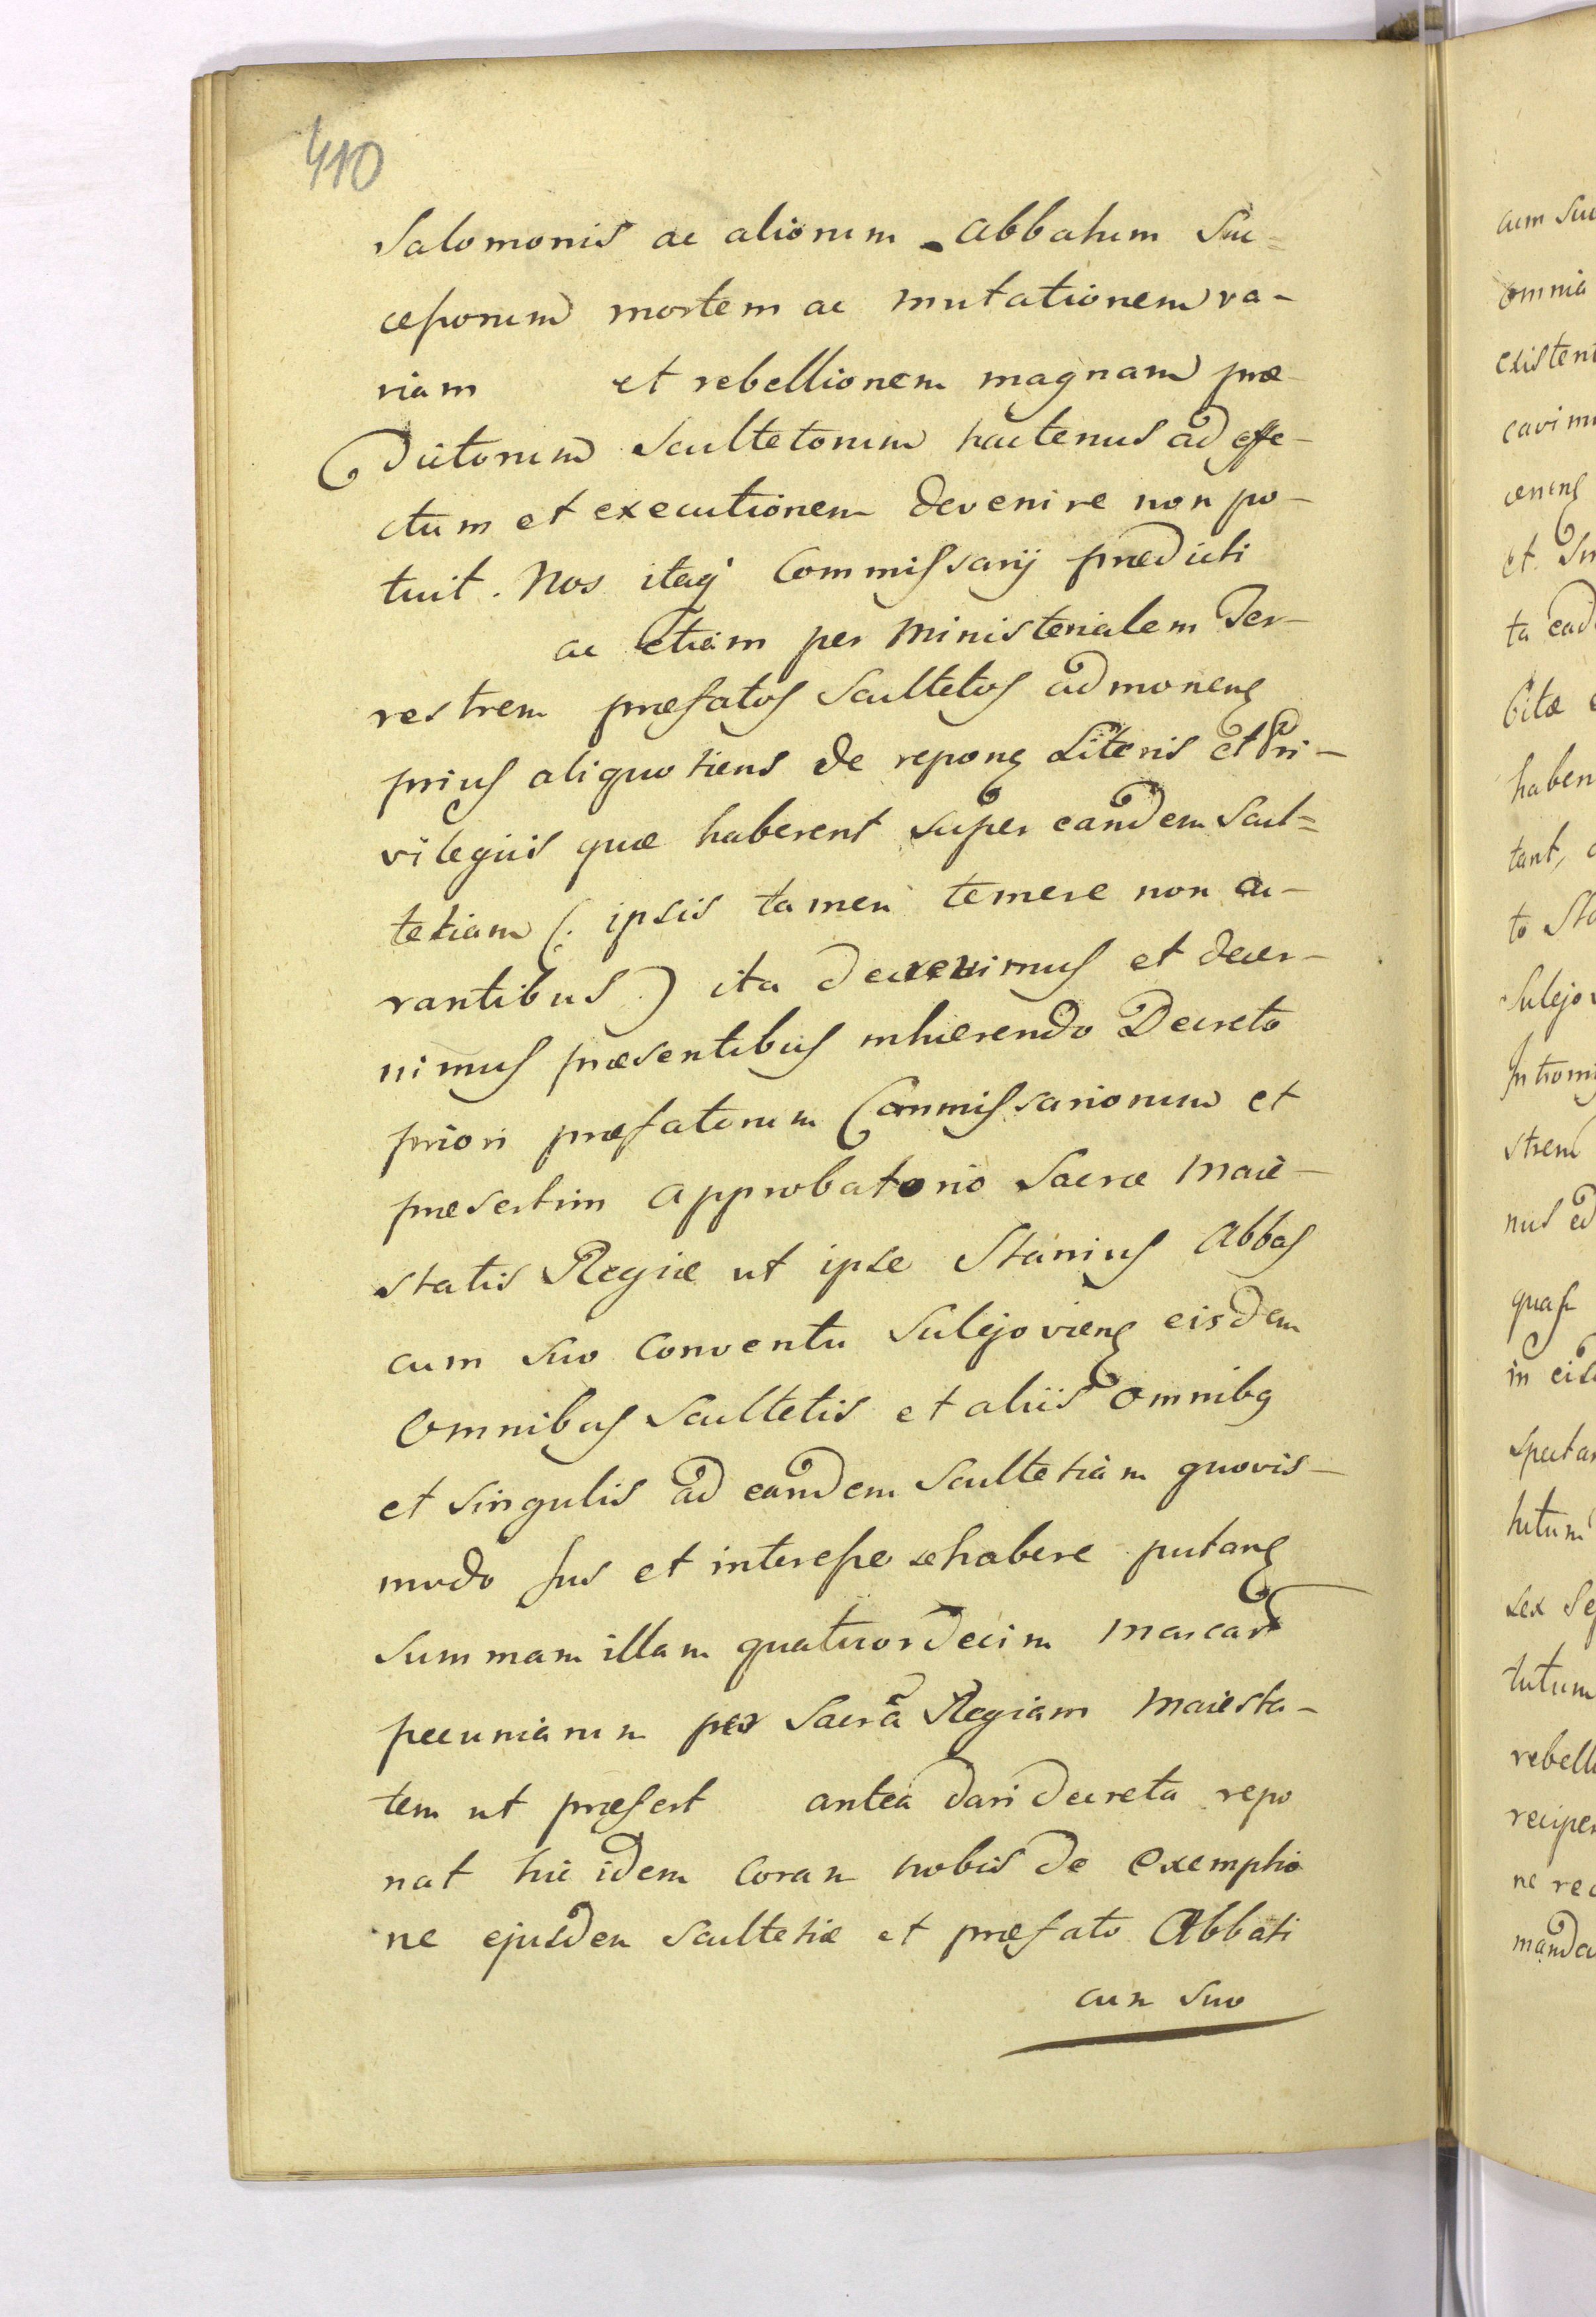 410
Salomonis ac aliorum Abbatum Suc=
cessorum mortem ac mutationem va-
riam et rebellionem magnam præ
dictorum Scultetorum hactenus ad effe-
ctum et executionem devenire non po-
tuit. Nos itaq Commissarij prædicti
ac etiam per Ministerialem Ter-
restrem præfatos Scultetos admonens
prius aliquotiens de repons Literis et Pri-
vilegiis quæ haberent super eandem Scul=
tetiam (: ipsis tamen temere non cu-
rantibus :) ita decrevimus et decer-
nimus præsentibus inhærendo Decreto
priori præfatorum Commissariorum et
præsertim Approbatorio Sacræ Maie-
statis Regiæ ut ipse Stanius Abbas
cum suo Conventu Sulejoviens eisdem
Omnibus Scultetis et aliis omnibq
et singulis ad eandem Scultetiam quovis-
modo Jus et interesse se habere putans
Summam illam quatuordecim marcar
pecuniarum per Sacrã Regiam Maiesta-
tem ut præfert antea dari decreta repo
nat hic idem coram nobis de exemptio
ne ejusdem Scultetiæ et præfato Abbati
cum suo
cum Suo
omnia
et Sn
haben
tant,
to Sta
nus ad
in eis
sex Se
tutum
ne rec